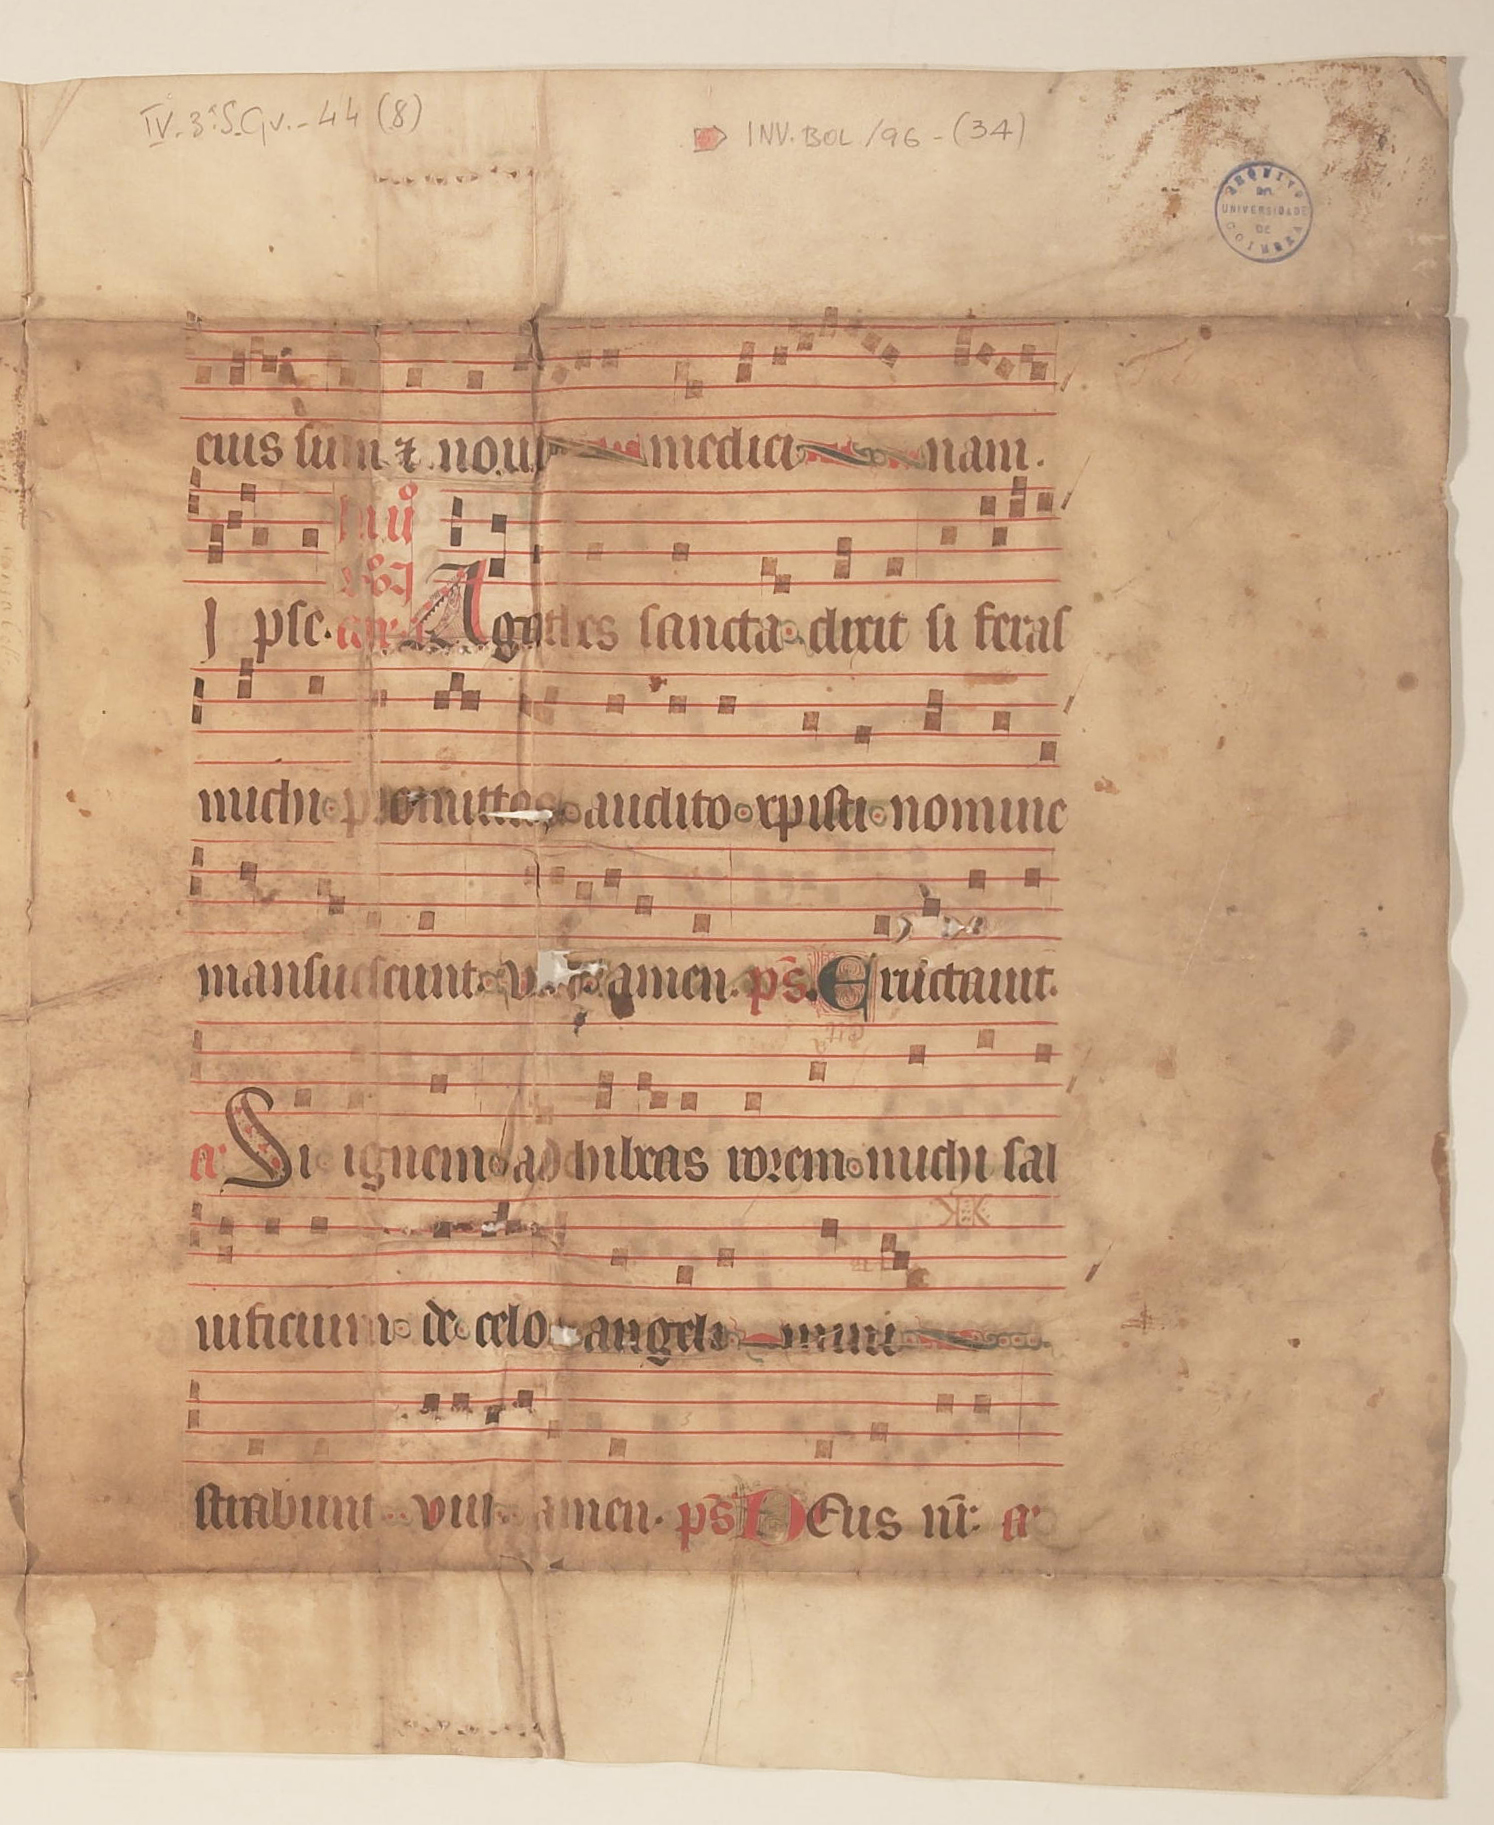 IV-3ªS.Gv.-44 (8)
INV. BOL /96 - (34)
ARQUIVO DA UNIVERSIDADE DE COIMBRA
cuius sum ⁊ noui medici nam.
I pse. Agathes sancta dixit si feras
michi promittas audito xpisti nomine
mansuescunt amen. ps. Eructauit.
a Si ignem adhibeas rorem michi sal
uificum de celo angeli mini
strabunt amen. ps Deus nr̄. a